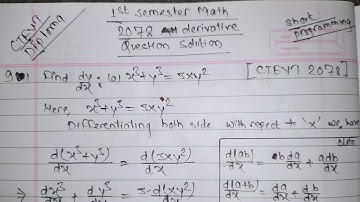 CTEVT
Diploma
1st semester math
2078 derivative
Question solution
short
programming
Find dy/dx : x³+y³ = 3xy² [CTEVT 2078]
Here, x³+y³ = 3xy²
Differentiating both side with respect to 'x' we have
Note
d(x³+y³)/dx = d(3xy²)/dx
d(ab)/dx = b da/dx + a db/dx
⇒ dx³/dx + dy³/dx = 3·d(xy²)/dx
d(a+b)/dx = da/dx + db/dx